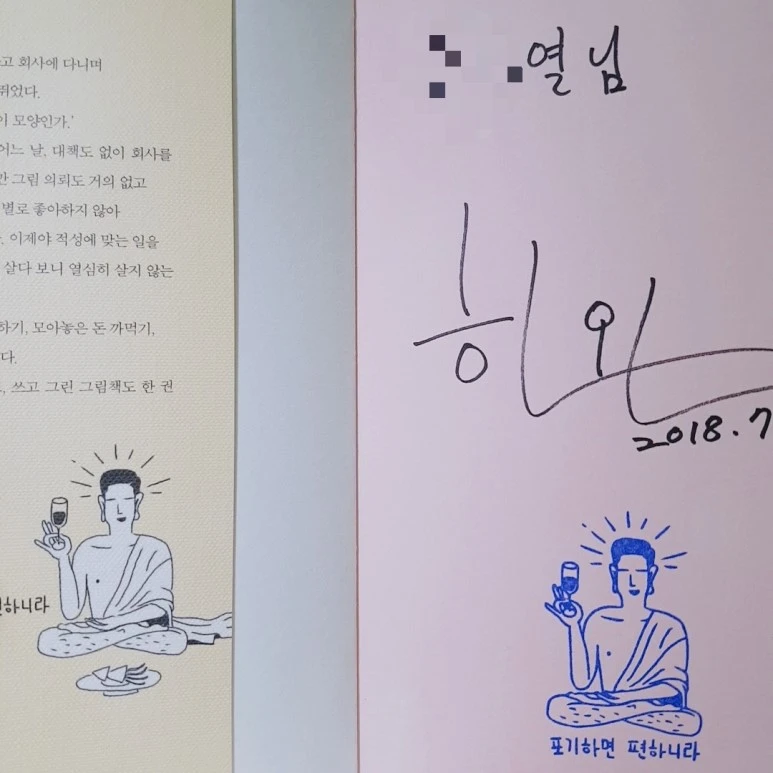 고 회사에 다니며
뛰었다.
이 모양인가.'
어느 날, 대책도 없이 회사를
그림 의뢰도 거의 없고
별로 좋아하지 않아
이제야 적성에 맞는 일을
살다 보니 열심히 살지 않는
하기, 모아놓은 돈 까먹기,
다.
쓰고 그린 그림책도 한 권
하니라
열님
하완
2018.7
포기하면 편하니라